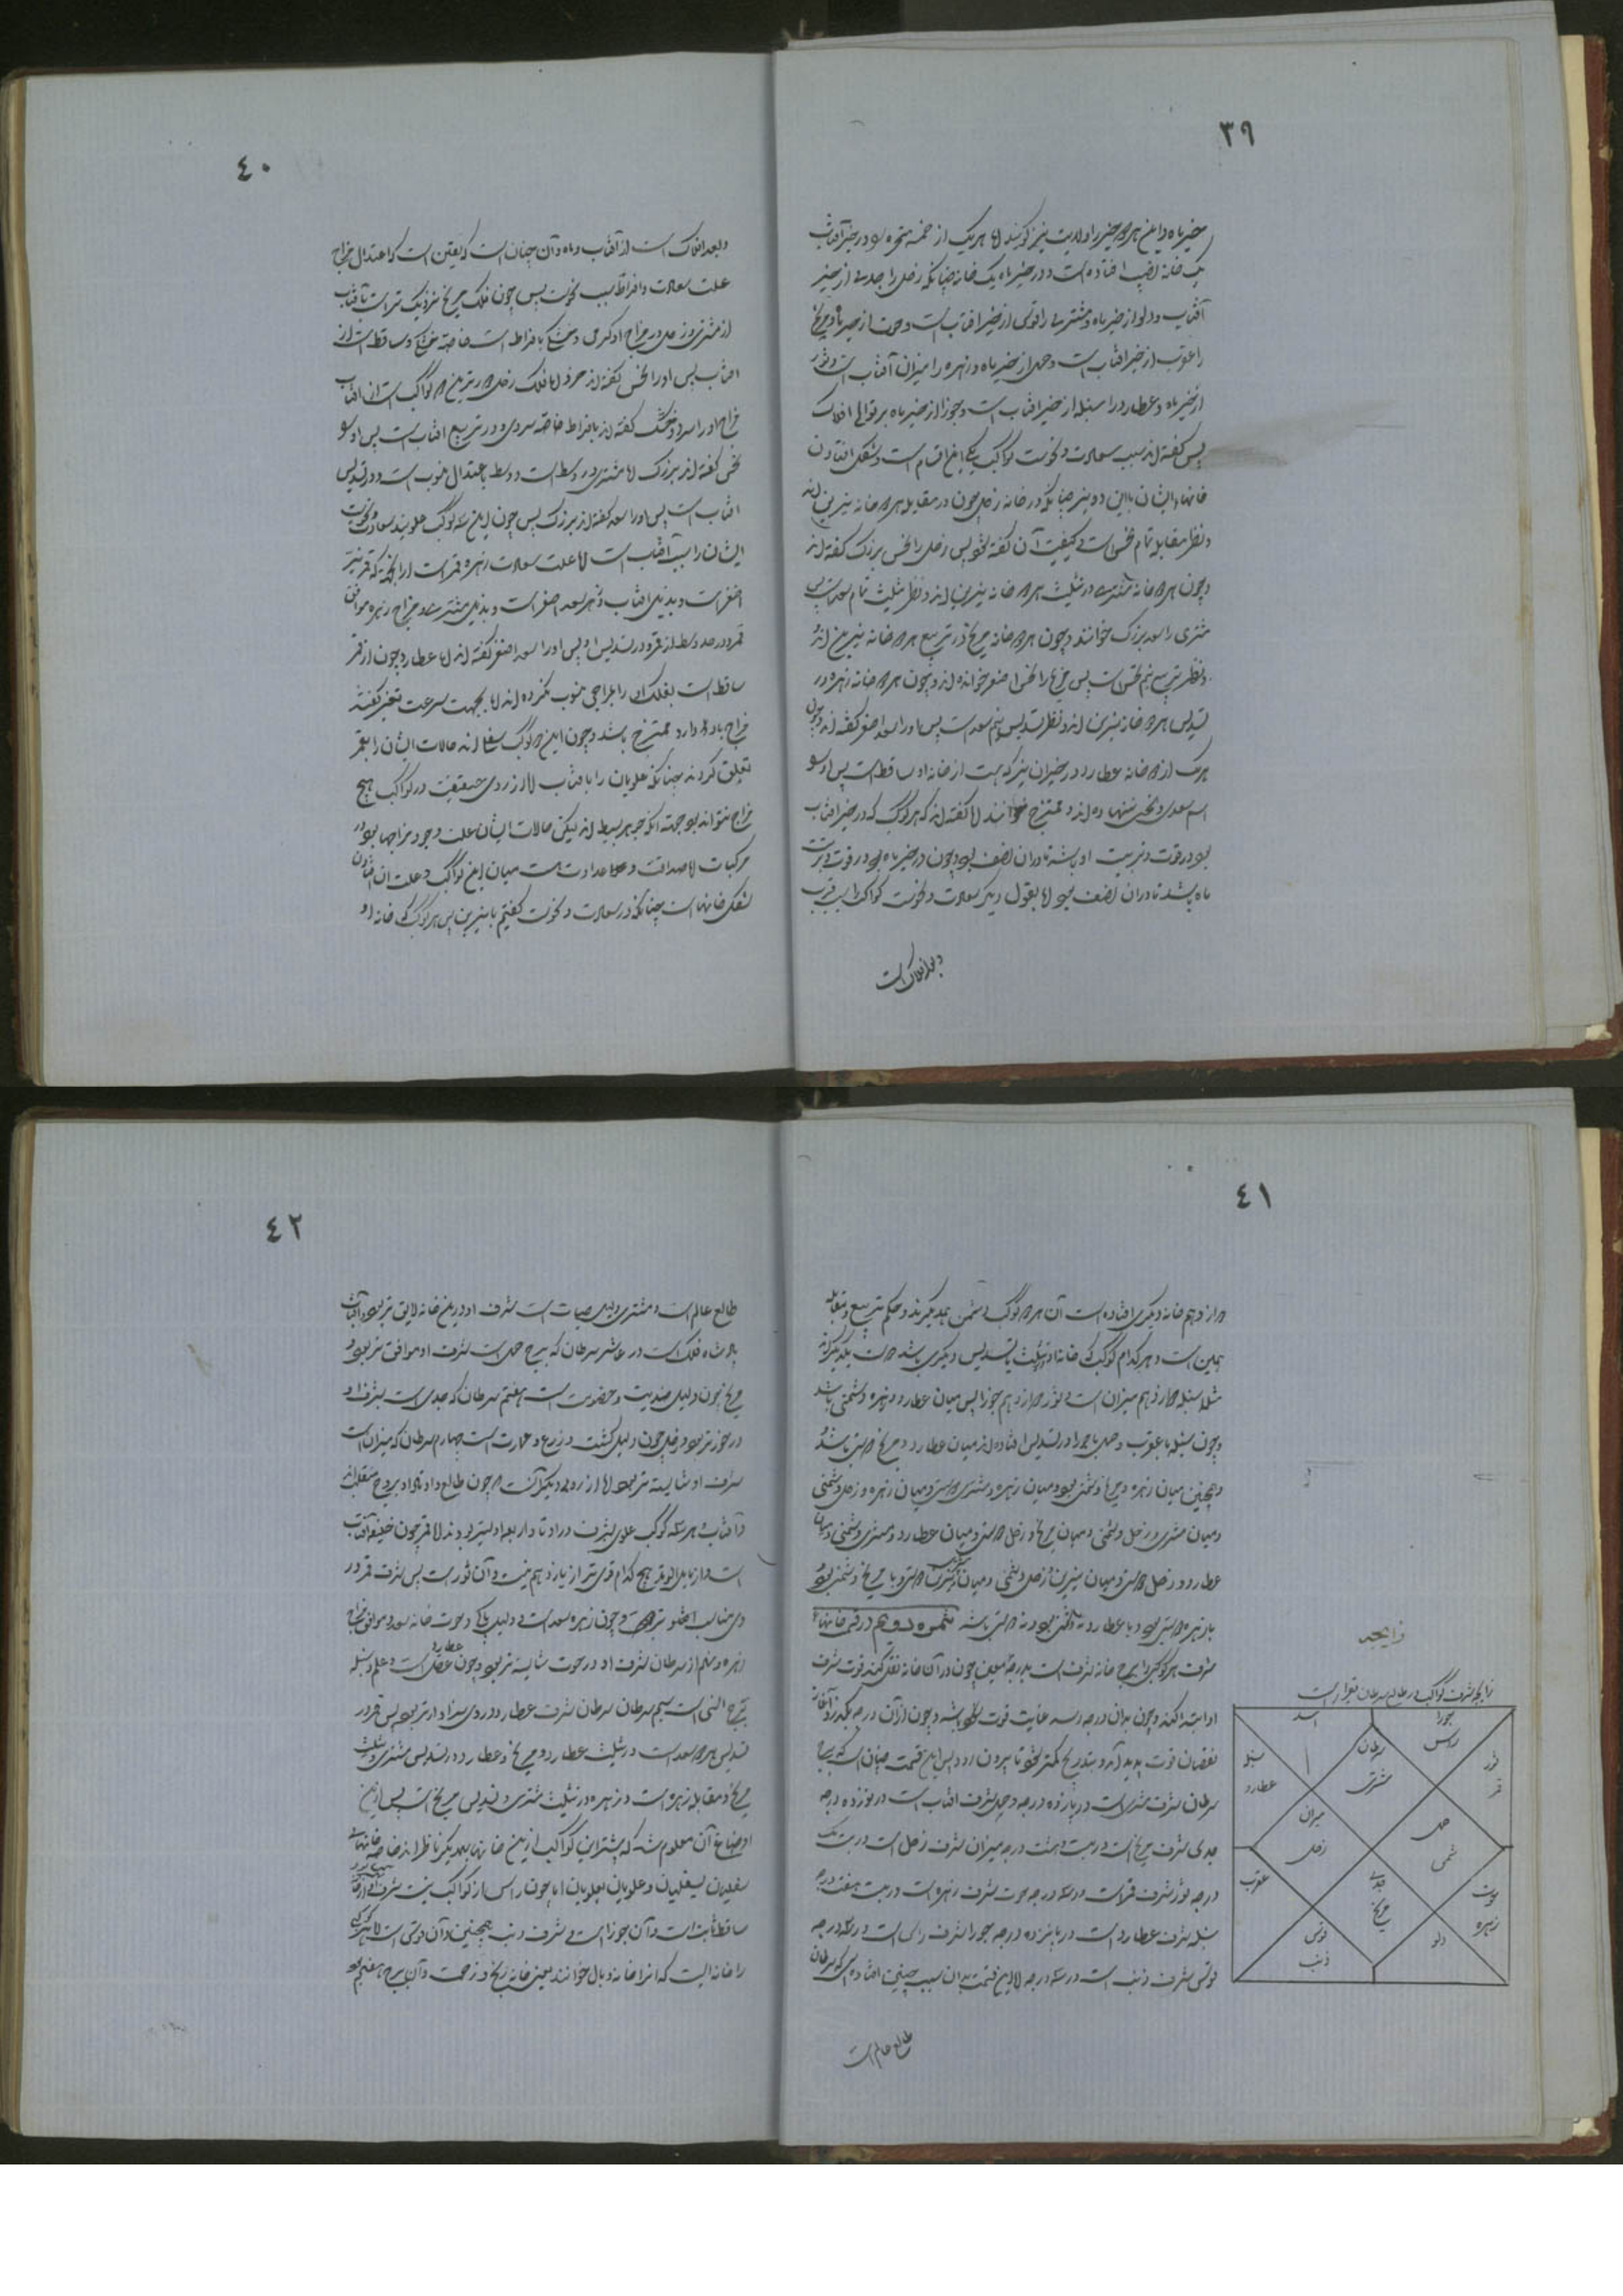 ٣٩
حیز ماه و این هر دو حیز را ولایت نیز گویند اما هر یک از خمسه متحیره بود در حیز آفتاب
یک خانه نصیب افتاده است و در حیز ماه یک خانه چنانکه زحل را جدی از حیز
آفتاب و دلو از حیز ماه و مشتری را قوس از حیز افتاب است و حوت از حیز ماه و مریخ
را عقرب از حیز افتاب است و حمل از حیز ماه و زهره را میزان آفتاب است و ثور
از حیز ماه و عطارد را سنبله از حیز افتاب است و جوزا از حیز ماه بر توالی افلاک
پس گفته‌اند سبب سعادت و نحوست کواکب یکی این اقسام است و شکل افتادن
خانهاء ایشان با این دو نیر چنانکه در خانه زحل چون در مقابله هر دو خانه نیرین اند
و نظر مقابله تمام نحس است کیفیت آن گفته شود پس زحل را نحس بزرگ گفته اند
و چون هر دو خانه مشتری در تثلیث هر دو خانه نیرین اند و نظر تثلیث تمام سعد است پس
مشتری را سعد بزرگ خوانند و چون هر دو خانه مریخ در تربیع هر دو خانه نیرین اند
و نظر تربیع نیم نحس است پس مریخ را نحس اصغر خوانده اند و چون هر دو خانه زهره در
تسدیس هر دو خانه نیرین اند و نظر تسدیس نیم سعد است پس او را سعد اصغر گفته اند و چون
هر یک از دو خانه عطارد در حیز آن نیر که هست از خانه او ساقط است پس او را
اسم سعدی و نحسی ننهاده اند و ممتزج خوانند اما گفته اند که هر کوکب که در حیز افتاب
بود در قوت و تربیت او باشد تا در آن نصف بود و چون در حیز ماه بود در قوت و تربیت
ماه باشد تا در آن نصف بود اما بقول دیگر سعادت و نحوست کواکب را سبب قرب
و بعد افلاک است
٤٠
و بعد افلاک است از آفتاب و ماه و آن چنان است که یقین است که اعتدال مزاج
علت سعادت و افراط سبب نحوست پس چون فلک مریخ نزدیک تر است بافتاب
از مشتری و زحل در مزاج او گرمی و خشکی بافراط است خاصه خشکی و ساقط است از
افتاب پس او را نحس گفته اند اما فلک زحل دورترین کواکب است از افتاب
مزاج او را سرد و خشک گفته اند بافراط خاصه سردی و در تربیع افتاب است پس او را
نحس گفته اند بزرگ اما مشتری در وسط است و وسط باعتدال منسوب است و در تسدیس
افتاب است پس او را سعد گفته اند بزرگ پس چون این سه کوکب علویند سعادت و نحوست
ایشان را سبب آفتاب است اما علت سعادت زهره قمر است
اصغر است و بدیل افتاب و زهره سعد اصغر است و بدیل مشتری و مزاج زهره موافق
قمر و در حد وسط از قمر و در تسدیس او پس او را سعد اصغر گفته اند اما عطارد چون از قمر
ساقط است بفلک او را بمزاجی منسوب نکرده اند اما بجهت سرعت تغیر گفتند
مزاج باد دارد و ممتزج باشد و چون این دو کوکب سفلی اند حالات ایشان را بقمر
تعلق کردند چنانکه علویان را بافتاب اما از روی حقیقت در کواکب هیچ
مزاج نتواند بود جهت آنکه جوهر بسیط اند لیکن حالات ایشان علت وجود مزاجها بود در
مرکبات اما صداقت و عداوت هست میان این کواکب و علت آن افتادن
شکل خانهاست چنانکه در سعادت و نحوست گفتیم با نیرین پس هر کوکب که خانه او
٤١
دوازدهم خانه دیگری افتاده است آن هر دو کوکب دشمن همدیگرند و حکم تربیع و مقابله
همین است و هر کدام کوکب که خانه او تثلیث یا تسدیس دیگری باشد دوست یکدیگراند
مثلا سنبله دوازدهم میزان است و ثور دوازدهم جوزا پس میان عطارد و زهره دشمنی باشد
و چون سنبله با عقرب و حمل با جوزا در تسدیس افتاده اند میان عطارد و مریخ دوستی باشد
و همچنین میان زهره و مریخ دشمنی بود و میان زهره و مشتری دوستی و میان زهره و زحل دشمنی
و میان مشتری و زحل دشمنی و میان مریخ و زحل دوستی و میان عطارد و مشتری دشمنی و میان
عطارد و زحل دوستی و میان نیرین و زحل دشمنی و میان مشتری دوستی و با مریخ دشمنی بود
با زهره دوستی بود و با عطارد نه دشمنی بود و نه دوستی باشد ثمره دویم در قسمت خانهاء
شرف هر کوکبی را برج خانه شرف است بدرجه معین چون در آن خانه نقل کند قوت شرف
او ابتدا کند و چون بدان درجه رسد غایت قوت باشد و چون از آن درجه بگذرد آغاز
نقصان قوت پدید آید و بتدریج کمتر شود تا بیرون رود پس این قسمت چنان است که برج
سرطان شرف مشتریست در پانزده درجه و حمل شرف افتاب است در نوزده درجه
جدی شرف مریخ است در بیست و هشت درجه میزان شرف زحل است در بیست و یک
درجه ثور شرف قمر است در سه درجه حوت شرف زهره است در بیست هفت درجه
سنبله شرف عطارد است در پانزده درجه جوزا شرف راس است در سه درجه
قوس شرف ذنب است در سه درجه اما این قسمت بدان سبب چنین افتاده که سرطان
طالع عالم است
زایجه
زایجه شرف کواکب در طالع سرطان بقرار است
اسد
سرطان
مشتری
جوزا
راس
ثور
قمر
سنبله
عطارد
میزان
زحل
حمل
شمس
عقرب
جدی
مریخ
حوت
زهره
قوس
ذنب
دلو
٤٢
طالع عالم است و مشتری دلیل حیات است شرف او در این خانه لایق تر بود و آفتاب
پادشاه فلک است در عاشر سرطان که برج حمل است شرف او موافق تر بود و
مریخ چون دلیل ضدیت و خصومت است هفتم سرطان که جدی است شرف او
در خور تر بود و زحل چون دلیل کشت و زرع و عمارت است چهارم سرطان که میزان است
شرف او شایسته تر بود اما از روی دیگر آنست که چون طالع و اوتاد او بروج منقلب اند
و آفتاب و هر سه کوکب علوی بشرف در اوتاد اربعه اولیتر بودند اما قمر چون خلیفه آفتاب
است و از مایل الوتد هیچ کدام قوی تر از یازدهم نیست و آن ثور است پس شرف قمر در
وی مناسب تر است و چون زهره سعد است و دلیل پاکی و حوت خانه سعد و موافق مزاج
زهره و نهم از سرطان شرف او در حوت شایسته تر بود و چون عطارد دلیل عقل است و علم و سنبله
برج است سیم سرطان شرف عطارد در وی سزاوارتر بود پس قمر در
تسدیس هر دو سعد است در تثلیث عطارد و مریخ و عطارد در تسدیس مشتری و تثلیث
مریخ و مقابله زهره است و زهره در تثلیث مشتری و تسدیس مریخ است پس از این
اوضاع آن معلوم شد که بیشتر این کواکب از این خانها بیکدیگر ناظراند خاصه خانهای
سفلیان بسفلیان و علویان بعلویان اما چون راس از کواکب نیست شرف او از خانه
ساقط است و آن جوزا است و شرف ذنب همچنین و آن قوس است اما هر کوکبی
را خانه ایست که آنرا خانه وبال خوانند یعنی خانه رنج و زحمت و آن برج هفتم بود